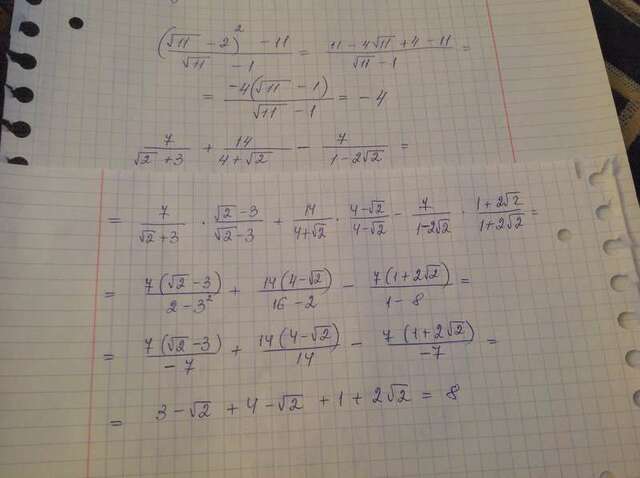 (√11 - 2)² - 11 / √11 - 1 = 11 - 4√11 + 4 - 11 / √11 - 1 =
= -4(√11 - 1) / √11 - 1 = -4
7 / √2 + 3 + 14 / 4 + √2 - 7 / 1 - 2√2 =
= 7 / √2 + 3 · √2 - 3 / √2 - 3 + 14 / 4 + √2 · 4 - √2 / 4 - √2 - 7 / 1 - 2√2 · 1 + 2√2 / 1 + 2√2 =
= 7(√2 - 3) / 2 - 3² + 14(4 - √2) / 16 - 2 - 7(1 + 2√2) / 1 - 8 =
= 7(√2 - 3) / -7 + 14(4 - √2) / 14 - 7(1 + 2√2) / -7 =
= 3 - √2 + 4 - √2 + 1 + 2√2 = 8